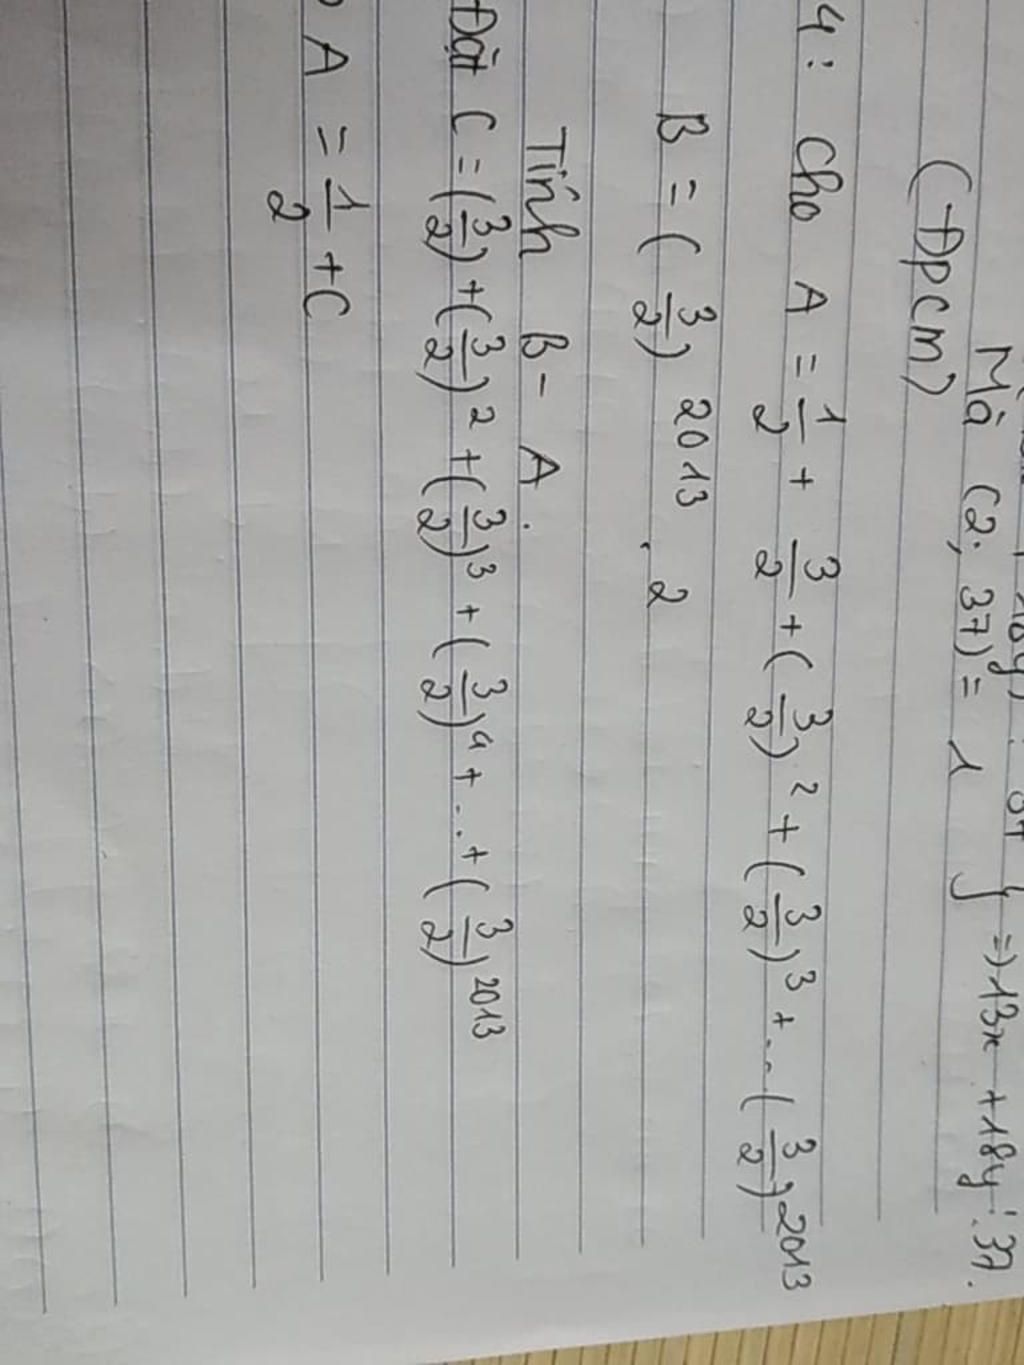 Mà (2; 37) = 1 } => 13x + 18y ⋮ 37.
(Đpcm)
4: Cho A = 1/2 + 3/2 + (3/2)² + (3/2)³ + ... (3/2)²⁰¹³
B = (3/2)²⁰¹³ . 2
Tính B - A.
Đặt C = (3/2) + (3/2)² + (3/2)³ + (3/2)⁴ + ... + (3/2)²⁰¹³
A = 1/2 + C